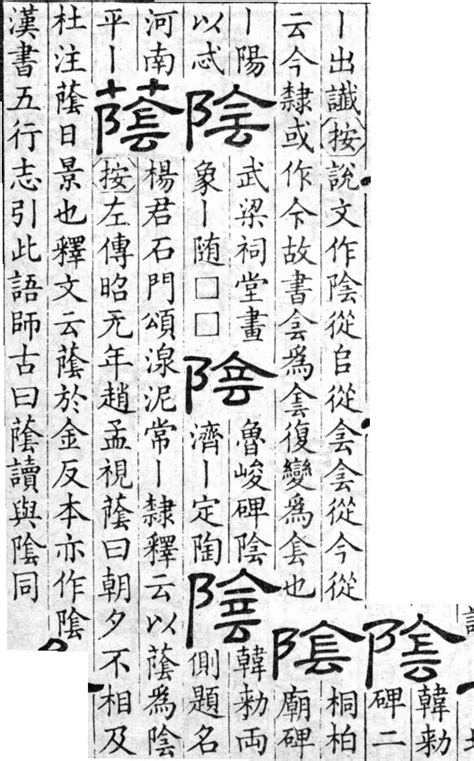 陰韓勑
碑二
陰桐柏
廟碑
丨出讖按說文作陰從𨸏從侌侌從今從
云今隸或作仒故書侌爲復變爲也
丨陽
以忒
陰武梁祠堂畫
象丨随□□
陰魯峻碑陰
濟丨定陶
陰韓勑兩
側題名
河南
平丨
蔭楊君石門頌湶泥常丨隸釋云以蔭爲陰
按左傳昭元年趙孟視蔭曰朝夕不相及
杜注蔭日景也釋文云蔭於金反本亦作陰
漢書五行志引此語師古曰蔭讀與陰同